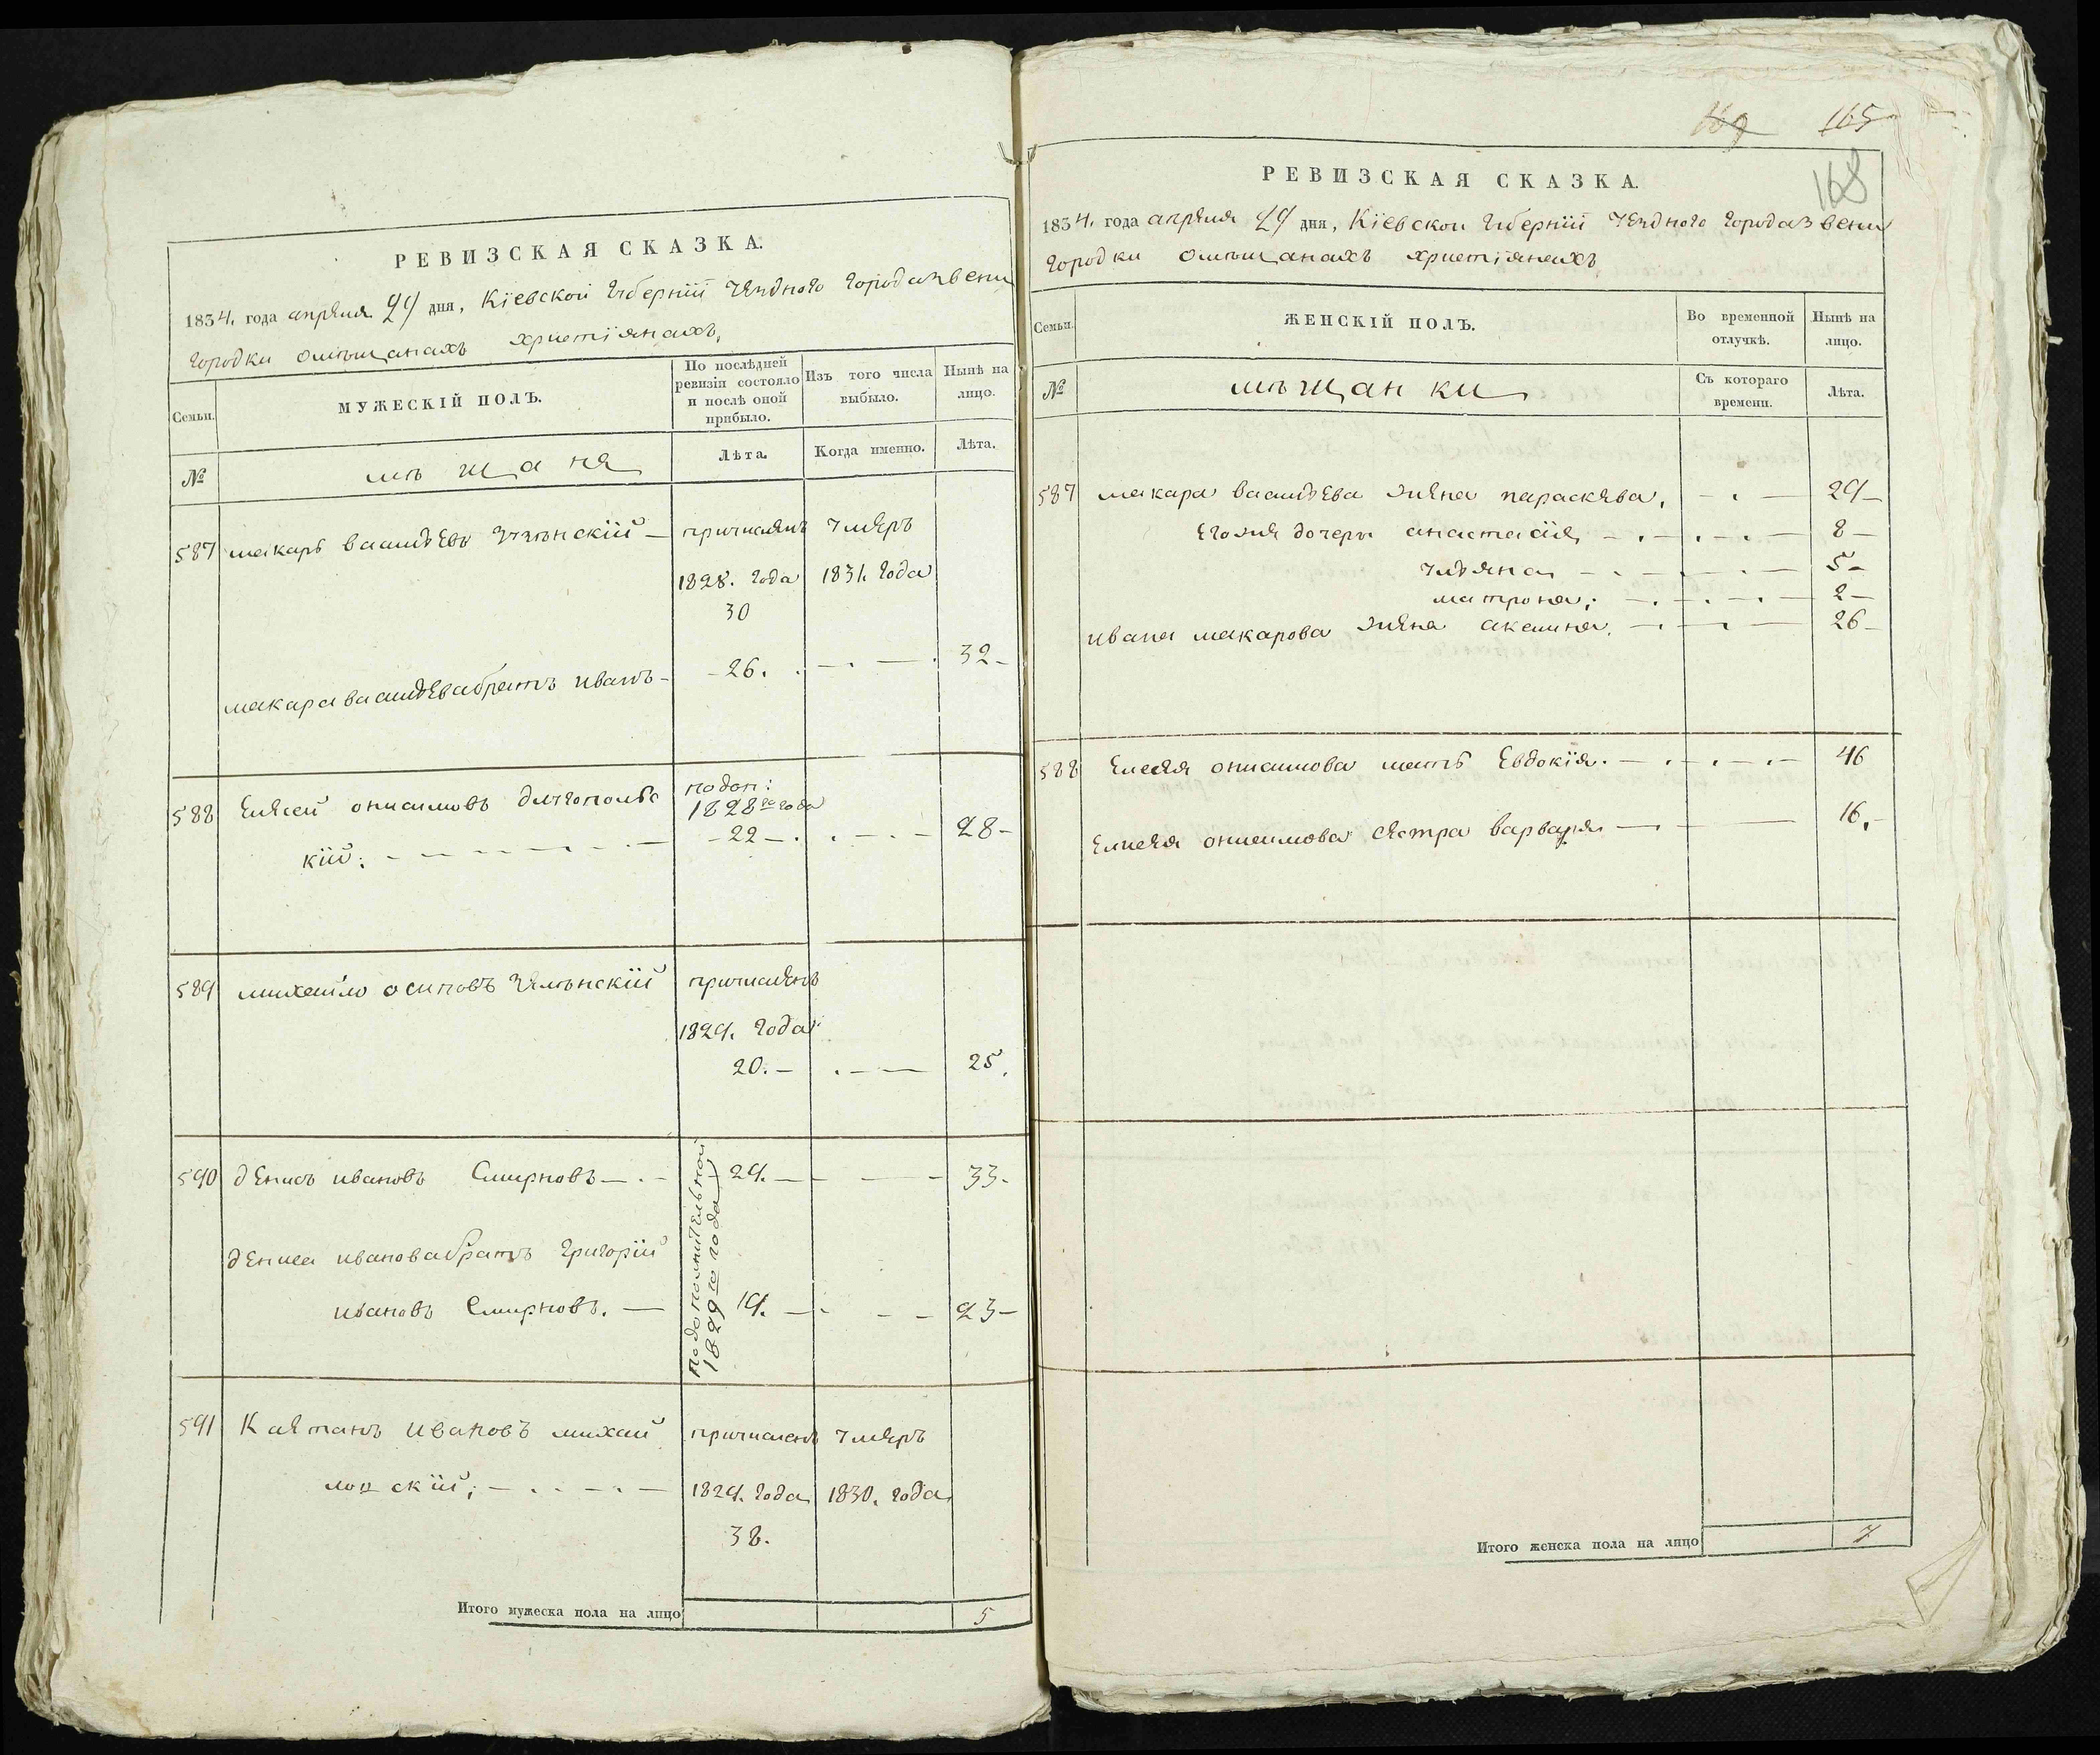 РЕВИЗСКАЯ СКАЗКА.
1834. года апреля 29 дня, Кїевской губернїи уезднаго города звени
городки омѣщанахъ христїянахъ,
Семьи.
МУЖЕСКІЙ ПОЛЪ.
По послѣдней
ревизіи состояло
и послѣ оной
прибыло.
Изъ того числа
выбыло.
Нынѣ на
лицо.
№
мѣщаня
Лѣта.
Когда именно.
Лѣта.
587 макаръ васильевъ — причисленъ умеръ
1828. года 1831. года
30
макара васильева братъ иванъ - - 26. . — . — . 32 -
588 Елисей онисимовъ подоп:
1828го года
кїй: - 22 - . . - . - 28 -
589 михайло осиповъ причисленъ
1829. года:
20. - . — — 25.
590 денисъ ивановъ Смирновъ — . - 29. — - — - 33 -
дениса иванова братъ григорїй
ивановъ Смирновъ. — 19. — - — - 23 —
Подополнительной
1829го года
591 Каетанъ ивановъ михай причисленъ умеръ
ловскїй; — . . — . — 1829. года 1830. года
38.
Итого мужеска пола на лицо 5
169 165
168
РЕВИЗСКАЯ СКАЗКА.
1834. года апреля 29 дня, Кїевской губернїи уезднаго города звени
городки омѣщанахъ христїянахъ
Семьи.
ЖЕНСКІЙ ПОЛЪ.
Во временной
отлучкѣ.
Нынѣ на
лицо.
№
мѣщанки
Съ котораго
времени.
Лѣта.
587 макара васильева жена параскева, — . — 29 —
егожя дочери анастасїя — . — . — . — 8 —
ульяна — . — . — 5 -
матрона; — . — . — . — 2 —
ивана макарова жена аксинья. — . — . — 26 -
588 Елисея онисимова мать Евдокїя. — . — . — . — 46
Елисея онисимова сестра варвара — . — — 16. -
Итого женска пола на лицо 7